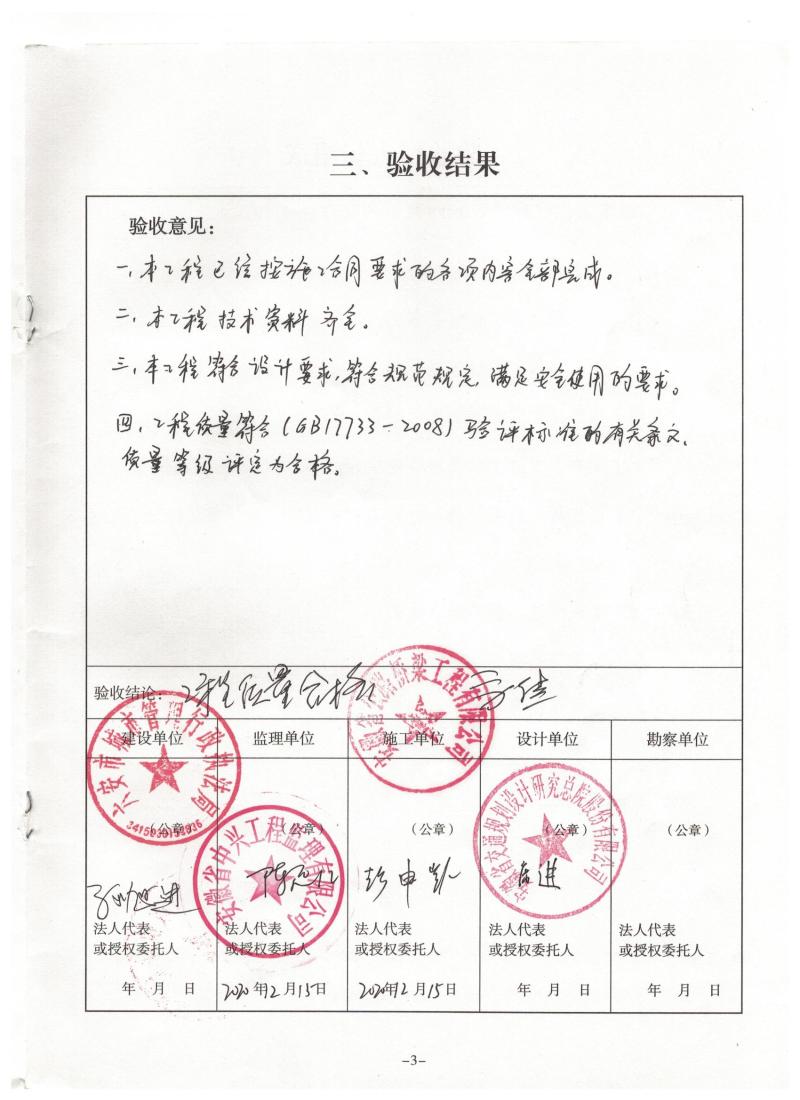 三、验收结果
验收意见：
一、本工程已经按施工合同要求的各项内容全部完成。
二、本工程技术资料齐全。
三、本工程符合设计要求，符合规范规定，满足安全使用的要求。
四、工程质量符合（GB17733-2008）验评标准的有关条文，
质量等级评定为合格。
验收结论：工程质量合格
建设单位 监理单位 施工单位 设计单位 勘察单位
六安市城市管理行政执法局
桥梁工程有限公司
安徽省中兴工程监理有限公司
安徽省交通规划设计研究总院股份有限公司
（公章） （公章） （公章） （公章） （公章）
彭申凯
法人代表 法人代表 法人代表 法人代表 法人代表
或授权委托人 或授权委托人 或授权委托人 或授权委托人 或授权委托人
年 月 日 2020年12月15日 2020年12月15日 年 月 日 年 月 日
-3-